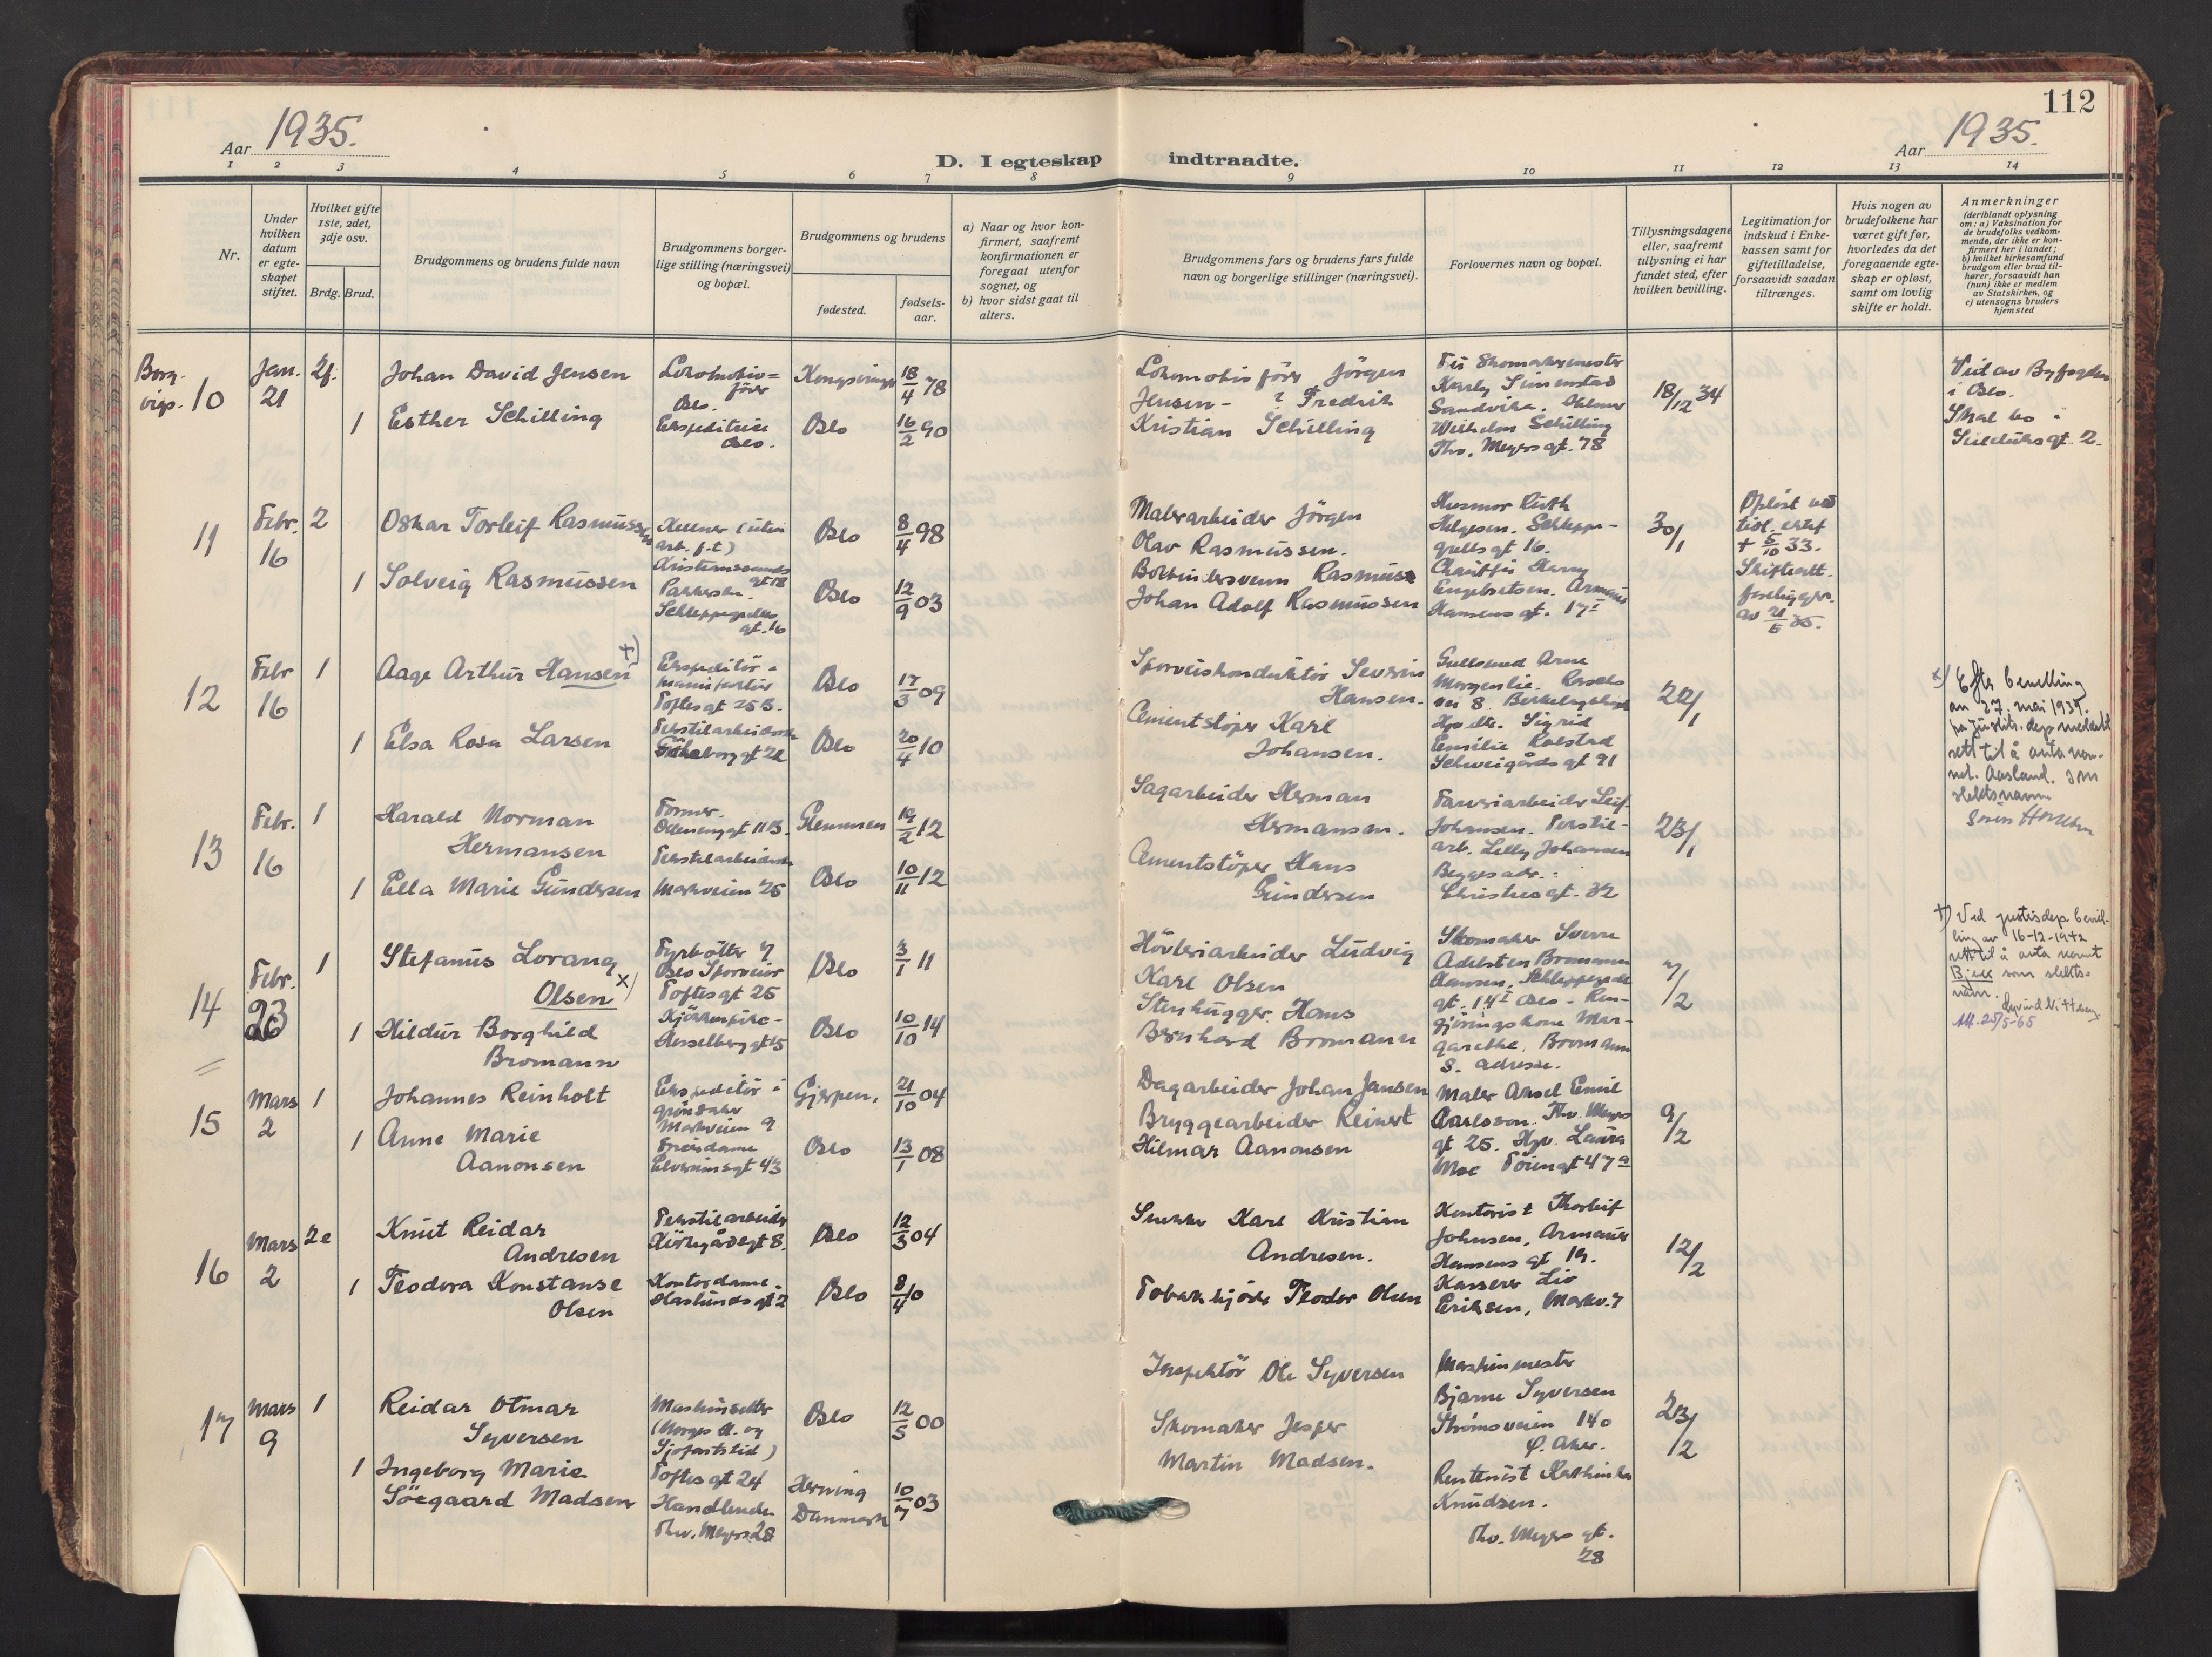 112
Aar 1935.
D. I egteskap indtraadte.
Aar 1935.
1 2 3 4 5 6 7 8 9 10 11 12 13 14
Nr.
Under hvilken datum er egteskapet stiftet.
Hvilket gifte 1ste, 2det, 3dje osv.
Brdg. Brud.
Brudgommens og brudens fulde navn
Brudgommens borgerlige stilling (næringsvei) og bopæl.
Brudgommens og brudens
fødested.
fødselsaar.
a) Naar og hvor konfirmert, saafremt konfirmationen er foregaat utenfor sognet, og
b) hvor sidst gaat til alters.
Brudgommens fars og brudens fars fulde navn og borgerlige stillinger (næringsvei).
Forlovernes navn og bopæl.
Tillysningsdagene eller, saafremt tillysning ei har fundet sted, efter hvilken bevilling.
Legitimation for indskud i Enkekassen samt for giftetilladelse, forsaavidt saadan tiltrænges.
Hvis nogen av brudefolkene har været gift før, hvorledes da det foregaaende egteskap er opløst, samt om lovlig skifte er holdt.
Anmerkninger
(deriblandt oplysning om: a) Vaksination for de brudefolks vedkommende, der ikke er konfirmert her i landet; b) hvilket kirkesamfund brudgom eller brud tilhører, forsaavidt han (hun) ikke er medlem av Statskirken, og c) utensogns bruders hjemsted
Borg. vigs. 10
Jan. 21
2f.
Johan David Jensen
Lokomotivfører Oslo.
Kongsvinger
18/4 78
Lokomotivfører Jörgen
Jensen -
18/12 34
1
Esther Schilling
Ekspeditrise Oslo.
Oslo
16/2 90
Fredrik
Kristian Schilling
Sandvika.
Wilhelm Schilling
Thv. Meyers gt. 78
Viet av Byfogden
i Oslo.
Skal bo i
Seilduks gt. 2.
11
Febr. 16
2
Oskar Torleif Rasmussen
Kellner (uten
arb. f.t)
Kristianssunds
gt 18
Oslo
8/4 98
Malerarbeider Jörgen
Olav Rasmussen.
Husmor Ruth
Helgesen. Schleppe-
grells gt 16.
30/1
Opløst ved
+ 5/10 33.
Skifteatt.
foreligger
av 21/5 35.
1
Solveig Rasmussen
Schleppegrells
gt. 16
Oslo
12/9 03
Johan Adolf Rasmussen
Engebretsen. Armauer
Hansens gt. 17 I
12
Febr 16
1
Aage Arthur Hansen +)
Ekspeditør -
manufaktur
Toftes gt 25 B.
Oslo
17/3 09
Sporveiskonduktör Sevrin
Hansen.
Gullsmed Arne
Morgenlie.
vei 8.
22/1
1
Elsa Rosa Larsen
Tekstilarbeiderske
Göteborg gt 22
Oslo
20/4 10
Cementstöper Karl
Johansen.
Sigrid
Emilie Rolstad
Schweigårds gt 91
x) Efter bevilling
av 27. mai 193
rett til å anta nav-
net Aasland som
slektsnavn
13
Febr. 16
1
Harald Norman
Hermansen
Former.
Glemmen
19/2 12
Sagarbeider Herman
Hermansen.
Farveriarbeider Leif
Johansen. Tekstil-
arb. Lilly Johansen
23/1
1
Ella Marie Gundersen
Tekstilarbeiderske
Markveien 25
Oslo
10/11 12
Cementstöper Hans
Gundersen
Begges adr.:
Christies gt. 32
14
Febr. 23
1
Stefanus Lorang
Olsen x)
Fyrbötter v
Oslo Sporveier
Toftes gt 25
Oslo
3/1 11
Hövleriarbeider Ludvig
Karl Olsen
Skomaker Sverre
Adelsten Bromann
Hansen, Schleppegrells
gt. 14 I Oslo - Ren-
7/2
1
Hildur Borghild
Bromann
Hesselberg gt 5
Oslo
10/10 14
Stenhugger Hans
Bernhard Bromann
gjöringskone Mar-
garethe, Bromann
s. adresse.
+) Ved justisdep. bevil-
ling av 16-12-1942
rett til å anta navnet
som slekts-
navn.
Att. 25/5-65
15
Mars 2
1
Johannes Reinholt
Ekspeditör i
grönsaker
Markveien 9
Gjerpen.
21/10 04
Dagarbeider Johan Jansen
Maler Aksel Emil
Karlsson. Thv. Meyers
gt 25.
9/2
1
Anne Marie
Aanonsen
Oslo
13/1 08
Bryggearbeider Reinert
Hilmar Aanonsen
Laura
Moe
16
Mars 2
2e
Knut Reidar
Andresen
Tekstilarbeider
Kirkegårdsgt 8.
Oslo
12/3 04
Snekker Karl Kristian
Andresen.
Kontorist Thorleif
Johnsen, Armauer
Hansens gt 19.
12/2
1
Teodora Konstanse
Olsen
Kontordame.
Haslunds gt 2
Oslo
8/4 10
Teodor Olsen
Kasserer Liv
Eriksen, Markv. 7
17
Mars 9
1
Reidar Otmar
Syversen
Maskinsetter
(Norges H. og
Sjøfartstid)
Toftes gt 24
Oslo
12/5 00
Inspektör Ole Syversen
Maskinmester
Bjarne Syversen
Strömsveien 140
Ø. Aker.
23/2
1
Ingeborg Marie
Söegaard Madsen
Handlende
Thv. Meyers 28
Herning
Danmark
10/7 03
Skomaker Jesper
Martin Madsen.
Rentenist Kathinka
Knudsen.
Thv. Meyers gt.
28